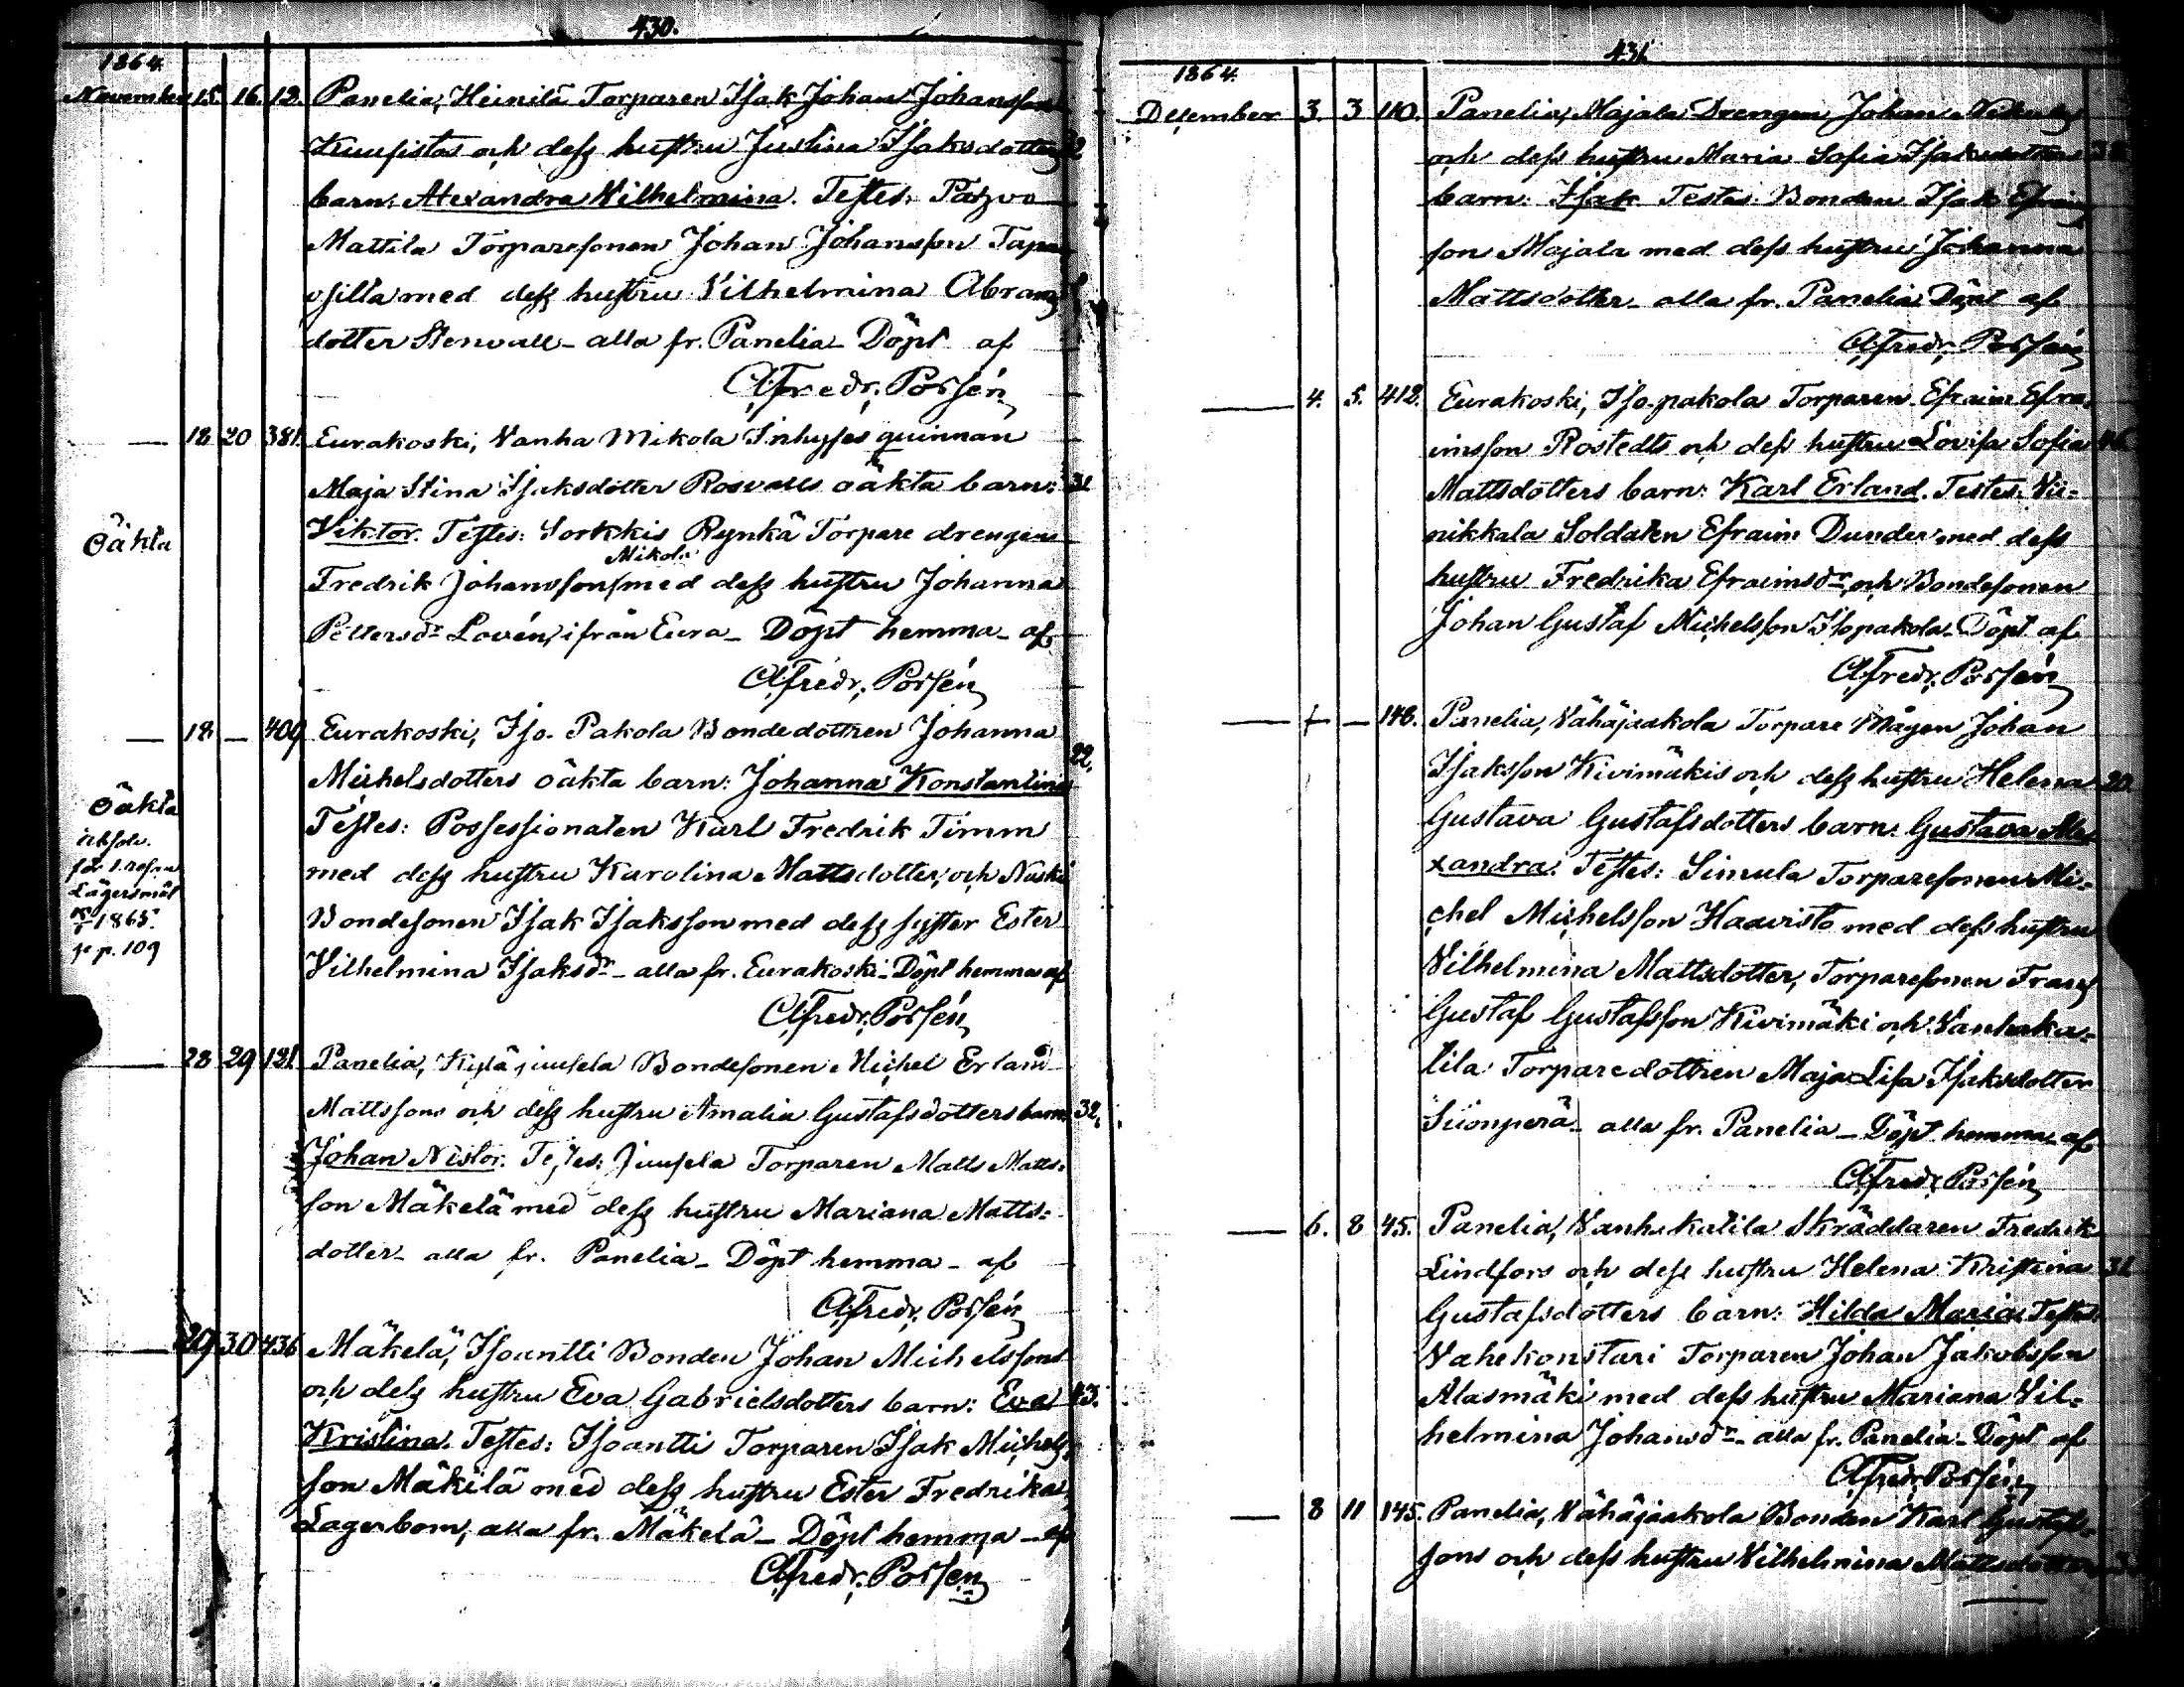 430.
1864.
November 15. 16. 12. Panelia, Heinilä Torparen Isak Johan Johansson
Kuusistos och dess hustru Justina Isaksdotters
barn: Alexandra Vilhelmina. Testes: Patzvo
Mattila Torparesonen Johan Johansson
med dess hustru Vilhelmina Abrams
dotter Stenvall – alla fr. Panelia – Döpt af
A. Fredr. Porsén
— 18 20 381. Eurakoski, Vanha Mikola Inhyses quinnan
Maja Stina Isaksdotter Rosvalls oäkta barn: 31
Oäkta
Viktor. Testes: Sorkkis Rynkä Torpare drengen
Mikola
Fredrik Johansson med dess hustru Johanna
Pettersdr Lovén, ifrån Eura – Döpt hemma – af
A. Fredr. Porsén
— 18. — 409 Eurakoski, Iso-Pakola Bondedottren Johanna
22.
Michelsdotters oäkta barn: Johanna Konstantina
Oäkta
Testes: Possessionaten Karl Fredrik Timm
absolv.
för 1. resan
med dess hustru Karolina Mattsdotter, och Naski
Lägersmål
1865.
Bondesonen Isak Isaksson med dess syster Ester
p. 109
Vilhelmina Isaksdr – alla fr. Eurakoski – Döpt hemma af
A. Fredr. Porsén
— 28 29 121. Panelia, Kyläjuusela Bondesonen Michel Erland
Mattssons och dess hustru Amalia Gustafsdotters barn: 32.
Johan Nistor. Testes: Juusela Torparen Matts Matts-
son Mäkelä med dess hustru Mariana Matts-
dotter – alla fr. Panelia – Döpt hemma – af
A. Fredr. Porsén
— 29 30 436 Mäkelä, Isoantti Bonden Johan Michelssons
och dess hustru Eva Gabrielsdotters barn: Eva 43.
Kristina. Testes: Isoantti Torparen Isak Michels-
son Mäkilä med dess hustru Ester Fredrika
Lagerbom, alla fr. Mäkelä – Döpt hemma – af
A. Fredr. Porsén
431.
1864.
December 3. 3 110. Panelia, Majala Drengen Johan
och dess hustru Maria Sofia Isaksdotters
barn: Isak. Testes: Bonden Isak Efraims
son Majala med dess hustru Johanna
Mattsdotter – alla fr. Panelia. Döpt af
A. Fredr. Porsén
— 4. 5. 412. Eurakoski, Iso-pakola Torparen Efraim Efra-
imsson Rostedts och dess hustru Lovisa Sofia
Mattsdotters barn: Karl Erland. Testes: Vii-
nikkala Soldaten Efraim Dunder med dess
hustru Fredrika Efraimsdr, och Bondesonen
Johan Gustaf Michelsson Isopakola – Döpt af
A. Fredr. Porsén
— — 148. Panelia, Vähäjaakola Torpare Mågen Johan
Isaksson Kivimäkis och dess hustru Helena 20.
Gustava Gustafsdotters barn: Gustava Ale-
xandra. Testes: Simula Torparesonen Mi-
chel Michelsson Haavisto med dess hustru
Vilhelmina Mattsdotter, Torparesonen Frans
Gustaf Gustafsson Kivimäki och Vanhaka-
tila Torparedottren Maja Lisa Isaksdotter
Siionperä – alla fr. Panelia – Döpt hemma af
A. Fredr. Porsén
— 6. 8 45. Panelia, Vanhakatila Skräddaren Fredrik
Lindfors och dess hustru Helena Kristina 31
Gustafsdotters barn: Hilda Maria. Testes:
Vahekonstari Torparen Johan Jakobsson
Alasmäki med dess hustru Mariana Vil-
helmina Johansdr – alla fr. Panelia – Döpt af
A. Fredr. Porsén
— 8 11 145. Panelia, Vähäjaakola Bonden Karl Gustafs-
sons och dess hustru Vilhelmina Mattsdotters